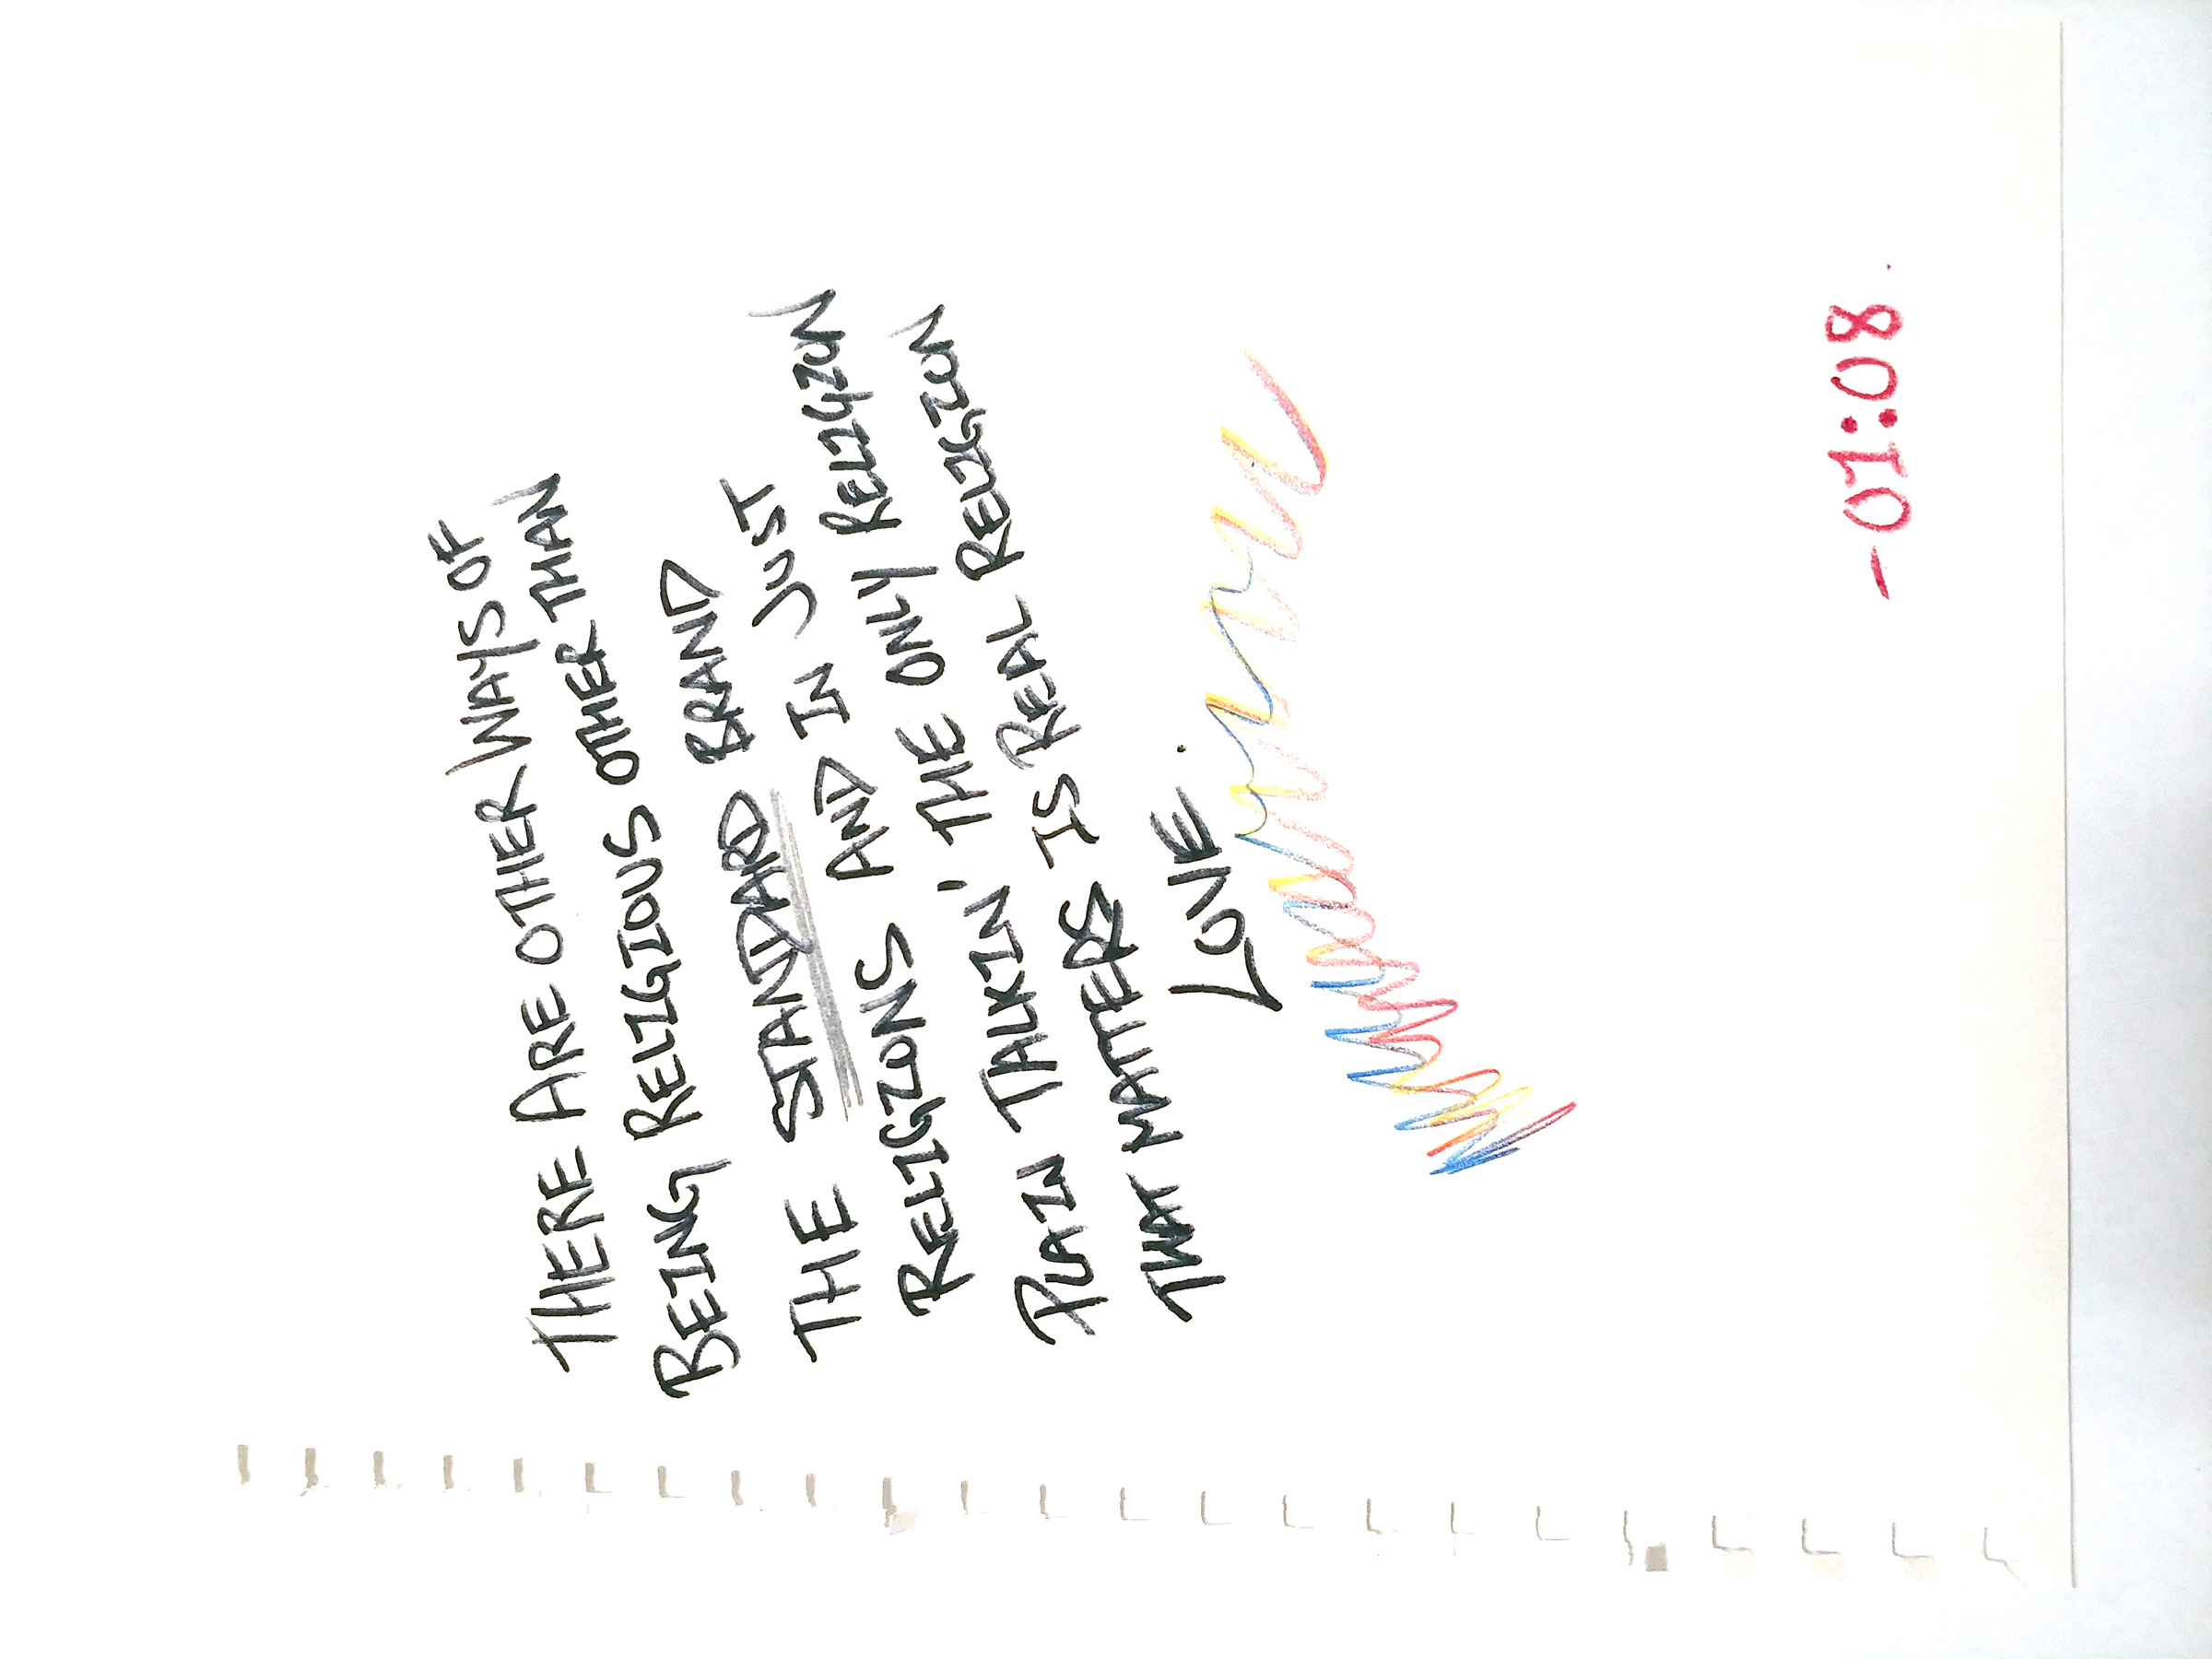 THERE ARE OTHER WAYS OF
BEING RELIGIOUS OTHER THAN OTHER THAN
THE STANDARD BRAND
RELIGIONS AND IN JUST
PLAIN TALKIN' THE ONLY RELIGION
THAT MATTERS IS REAL RELIGION
LOVE.
-01:08